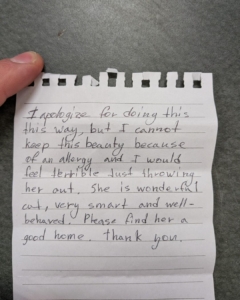 I apologize for doing this
this way, but I cannot
keep this beauty because
of an allergy and I would
feel terrible just throwing
her out. She is wonderful
cat, very smart and well-
behaved. Please find her a
good home. Thank you.